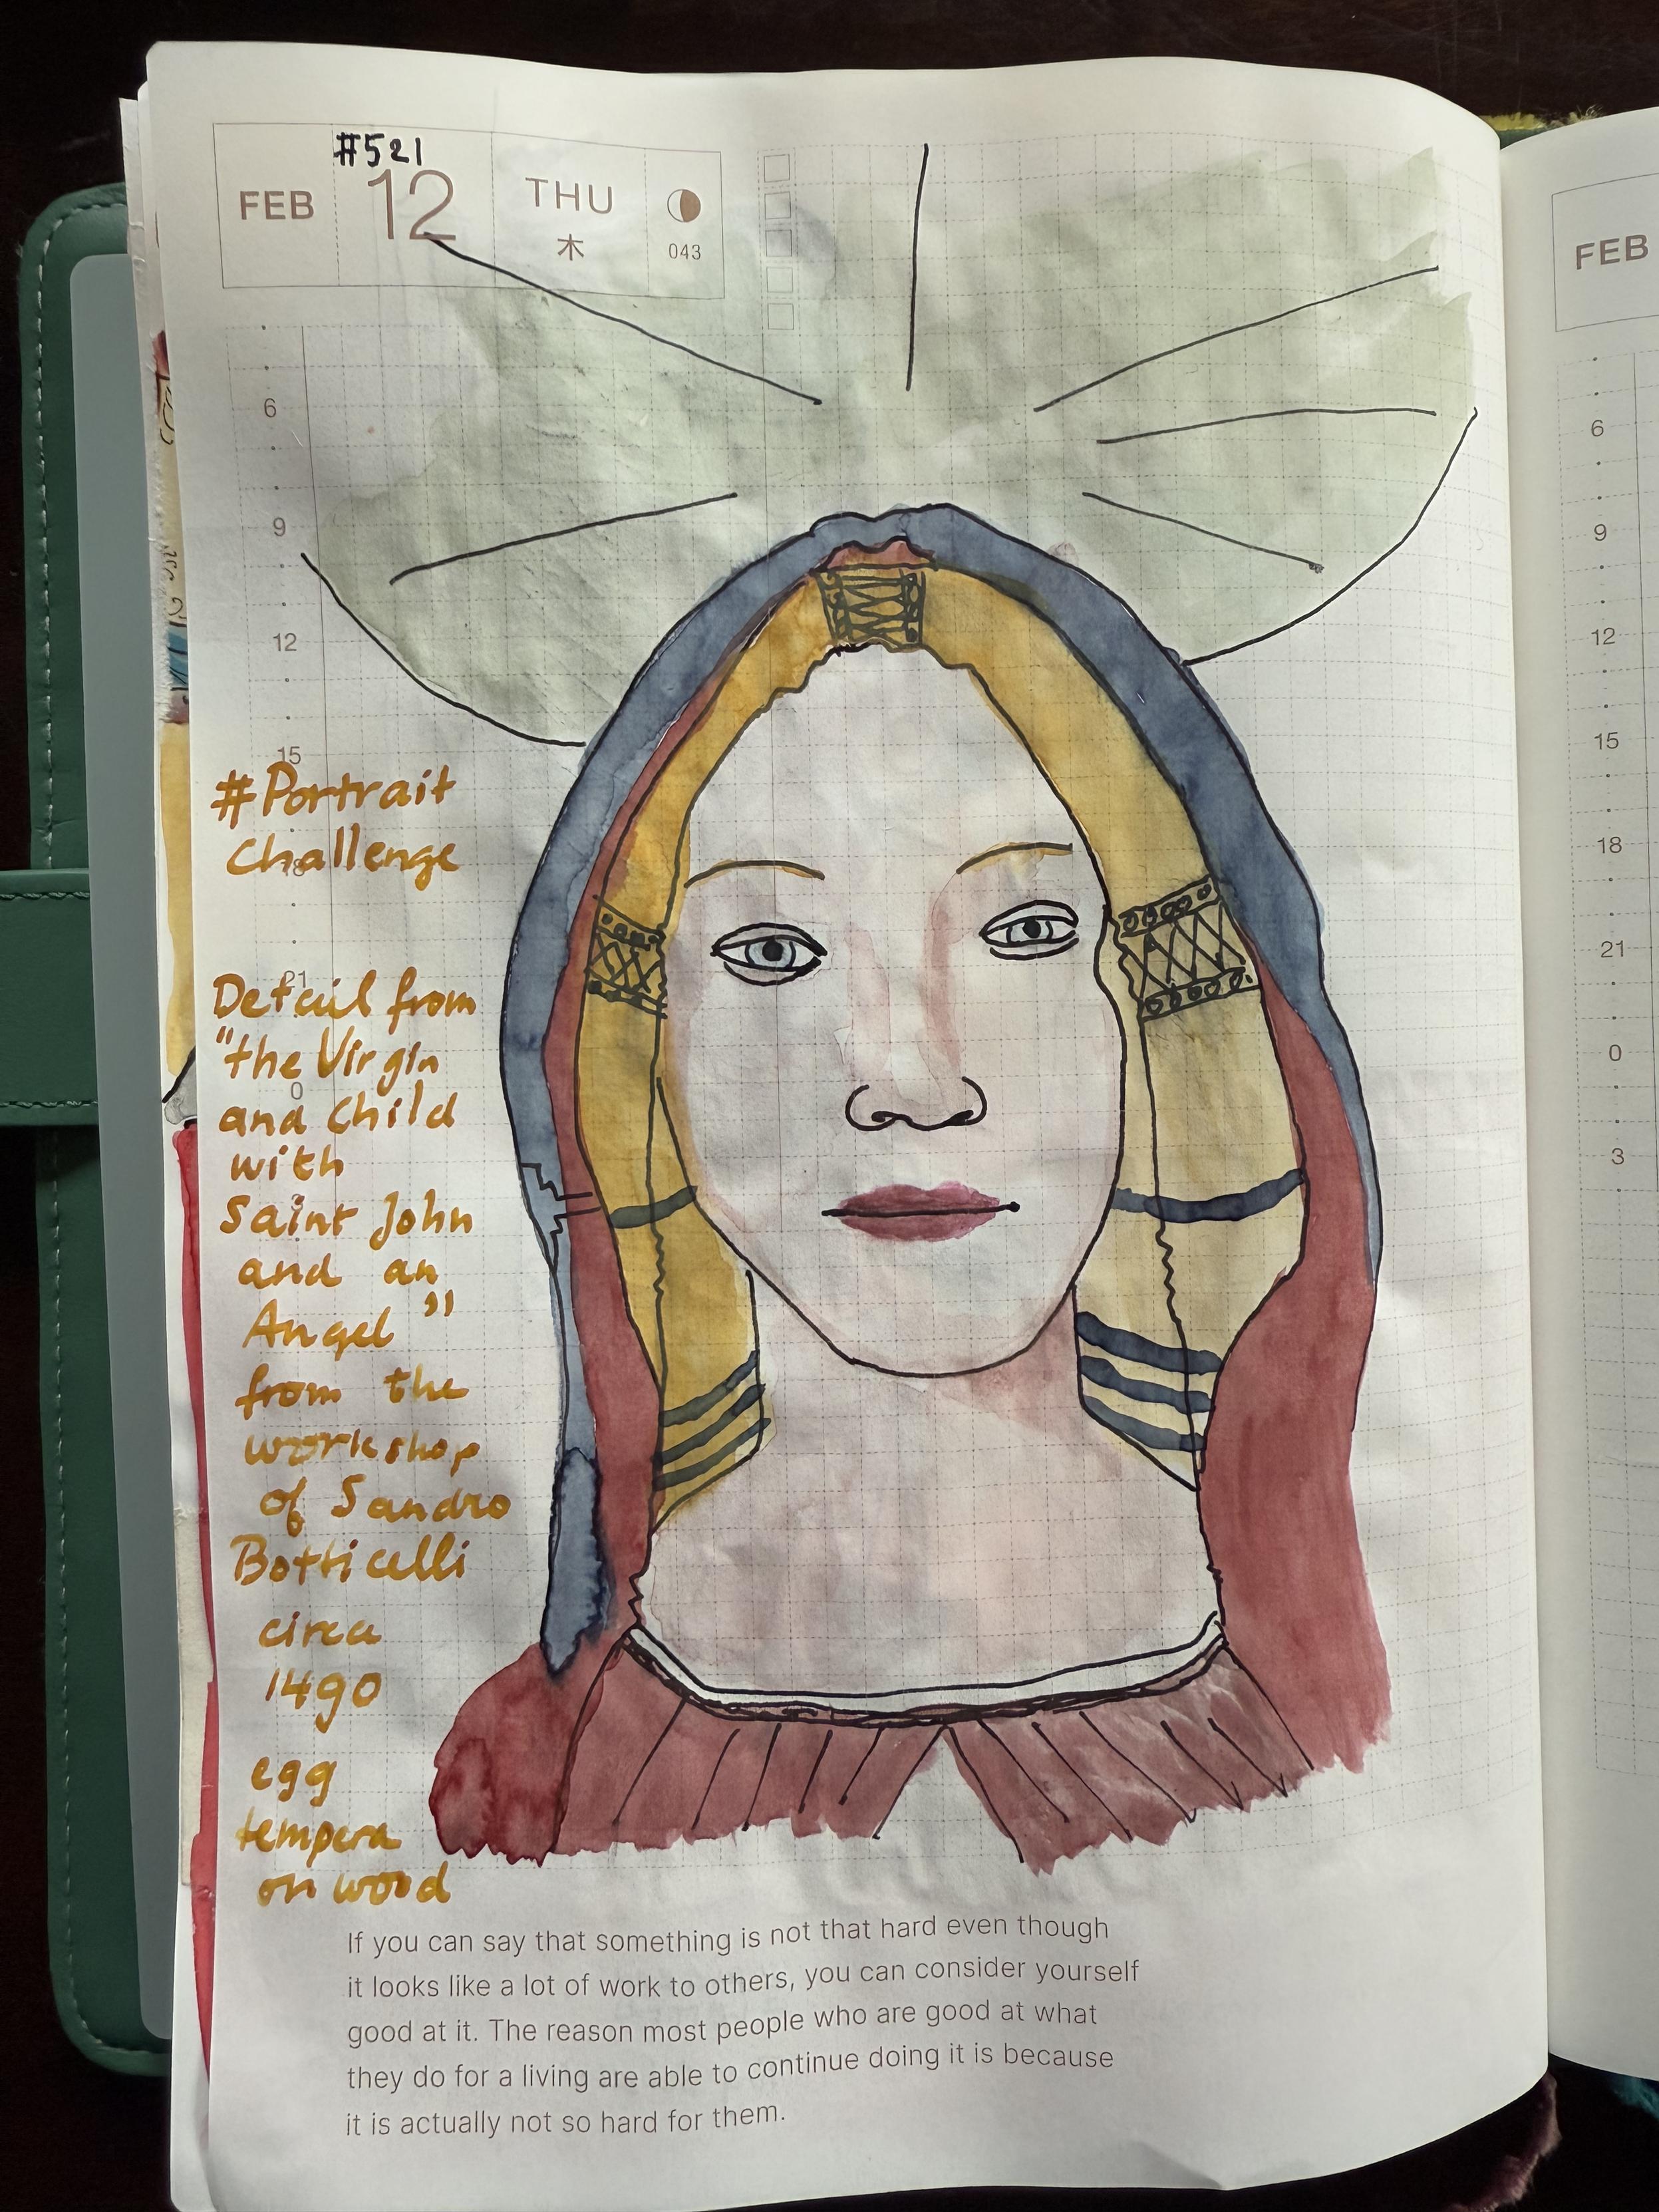 #521
FEB 12 THU
木 043
FEB
6
9
12
15
18
21
0
#Portrait
Challenge
Detail from
"the Virgin
and Child
with
Saint John
and an
Angel"
from the
workshop
of Sandro
Botticelli
circa
1490
egg
tempera
on wood
If you can say that something is not that hard even though
it looks like a lot of work to others, you can consider yourself
good at it. The reason most people who are good at what
they do for a living are able to continue doing it is because
it is actually not so hard for them.
6
9
12
15
18
21
0
3